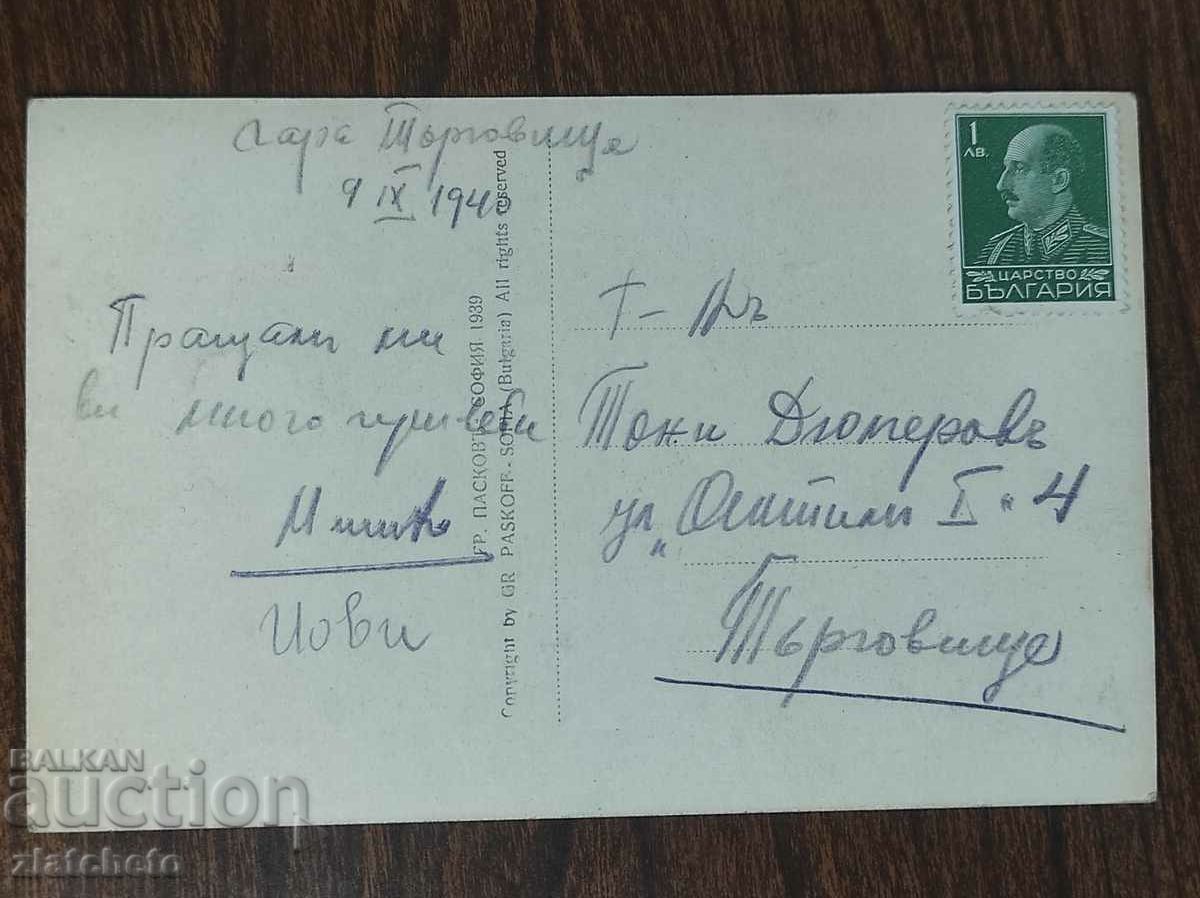 Гара Търговище
9 IX 194
Пращам ми
ви много привети
Йови
ГР. ПАСКОВЪ - СОФИЯ 1939
Copyright by GR PASKOFF - SOFIA (Bulgaria) All rights reserved
1
ЛВ.
ЦАРСТВО
БЪЛГАРИЯ
Т-нъ
Тони Дюлгеровъ
ул. II" 4
Търговище
BALKAN
auction
zlatcheto